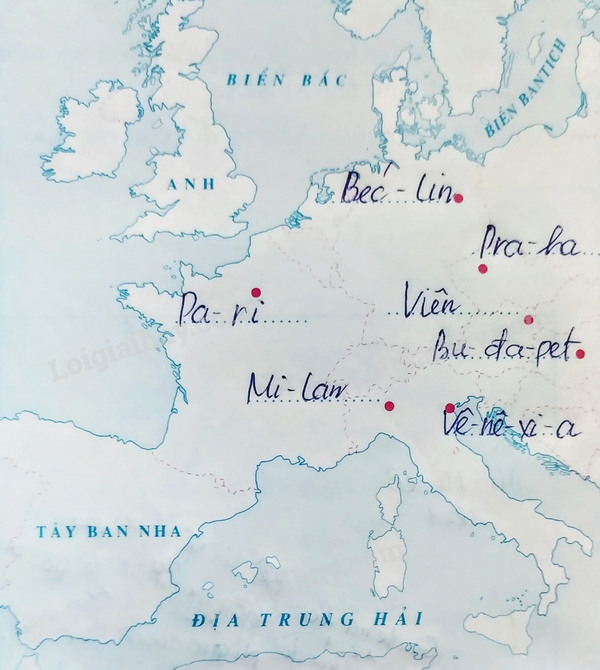 BIỂN BẮC
BIỂN BANTÍCH
ANH
Bec´-lin
Pra-ha
Pa-ri
Viên
Bu-đa-pet
Mi-lan
Vê-nê-xi-a
TÂY BAN NHA
ĐỊA TRUNG HẢI